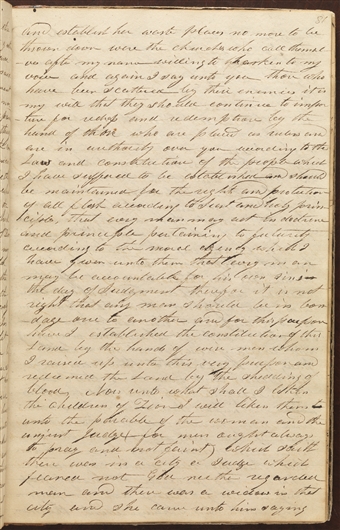 81
and establish her waste places no more to be
thrown down were the churches who call themsel
ves after my name willing to hearken to my
voice and again I say unto you those who
have been scattered by their enemies it is
my will that they should continue to impor
tune for redress and redemption by the
hand of those who are placed as rulers and
are in authority over you according to the
Law and constitution of the people which
I have suffered to be established and should
be maintained for the rights and protection
of all flesh according to Just and holy prin
ciples That every man may act in doctrine
and principle pertaining to futurity
according to the moral agency which I
have given unto them that every man
may be accountable for his own sins in
the day of Judgment therefor it is not
right that any man should be in bon
dage one to another and for this purpose
have I established the constitution of this
Land by the hands of wise men whom
I raised up unto this very purpose and
redeemed the Land by the shedding of
blood Now unto what shall I liken
the children of Zion I will liken them
unto the parable of the woman and the
unjust Judge (for men ought always
to pray and not faint) which saith
there was in a city a Judge which
feared not God neither regarded
man and there was a widow in that
city and she came unto him saying